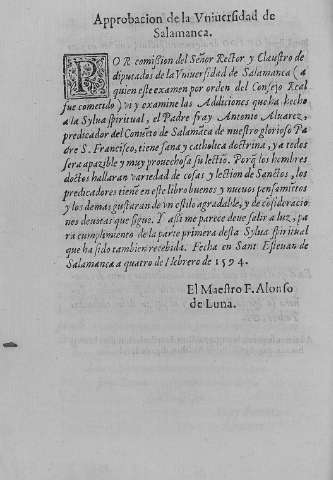 Approbacion de la Vniuersidad de
Salamanca.
POR comission del Señor Rector y Claustro de
diputados de la Vniuersidad de Salamanca (a
quien este examen por orden del Consejo Real
fue cometido) vi y examine las Addiciones que ha hecho
a la Sylua spiritual, el Padre fray Antonio Aluarez,
predicador del Conuēto de Salamāca de nuestro glorioso Pa
dre S. Francisco, tiene sana y catholica doctrina, y a todos
sera apazible y muy prouechosa su lectiō. Porq̄ los hombres
doctos hallaran variedad de cosas y lection de Sanctos, los
predicadores tienē en este libro buenos y nueuos pensamiētos
y los demas gustaran de vn estilo agradable, y de cōsideracio
nes deuotas que sigue. Y assi me parece deue salir a luz, pa
ra cumplimiento de la parte primera desta Sylua spiritual
que ha sido tambien recebida. Fecha en Sant Esteuan de
Salamanca a quatro de Hebrero de 1594.
El Maestro F. Alonso
de Luna.